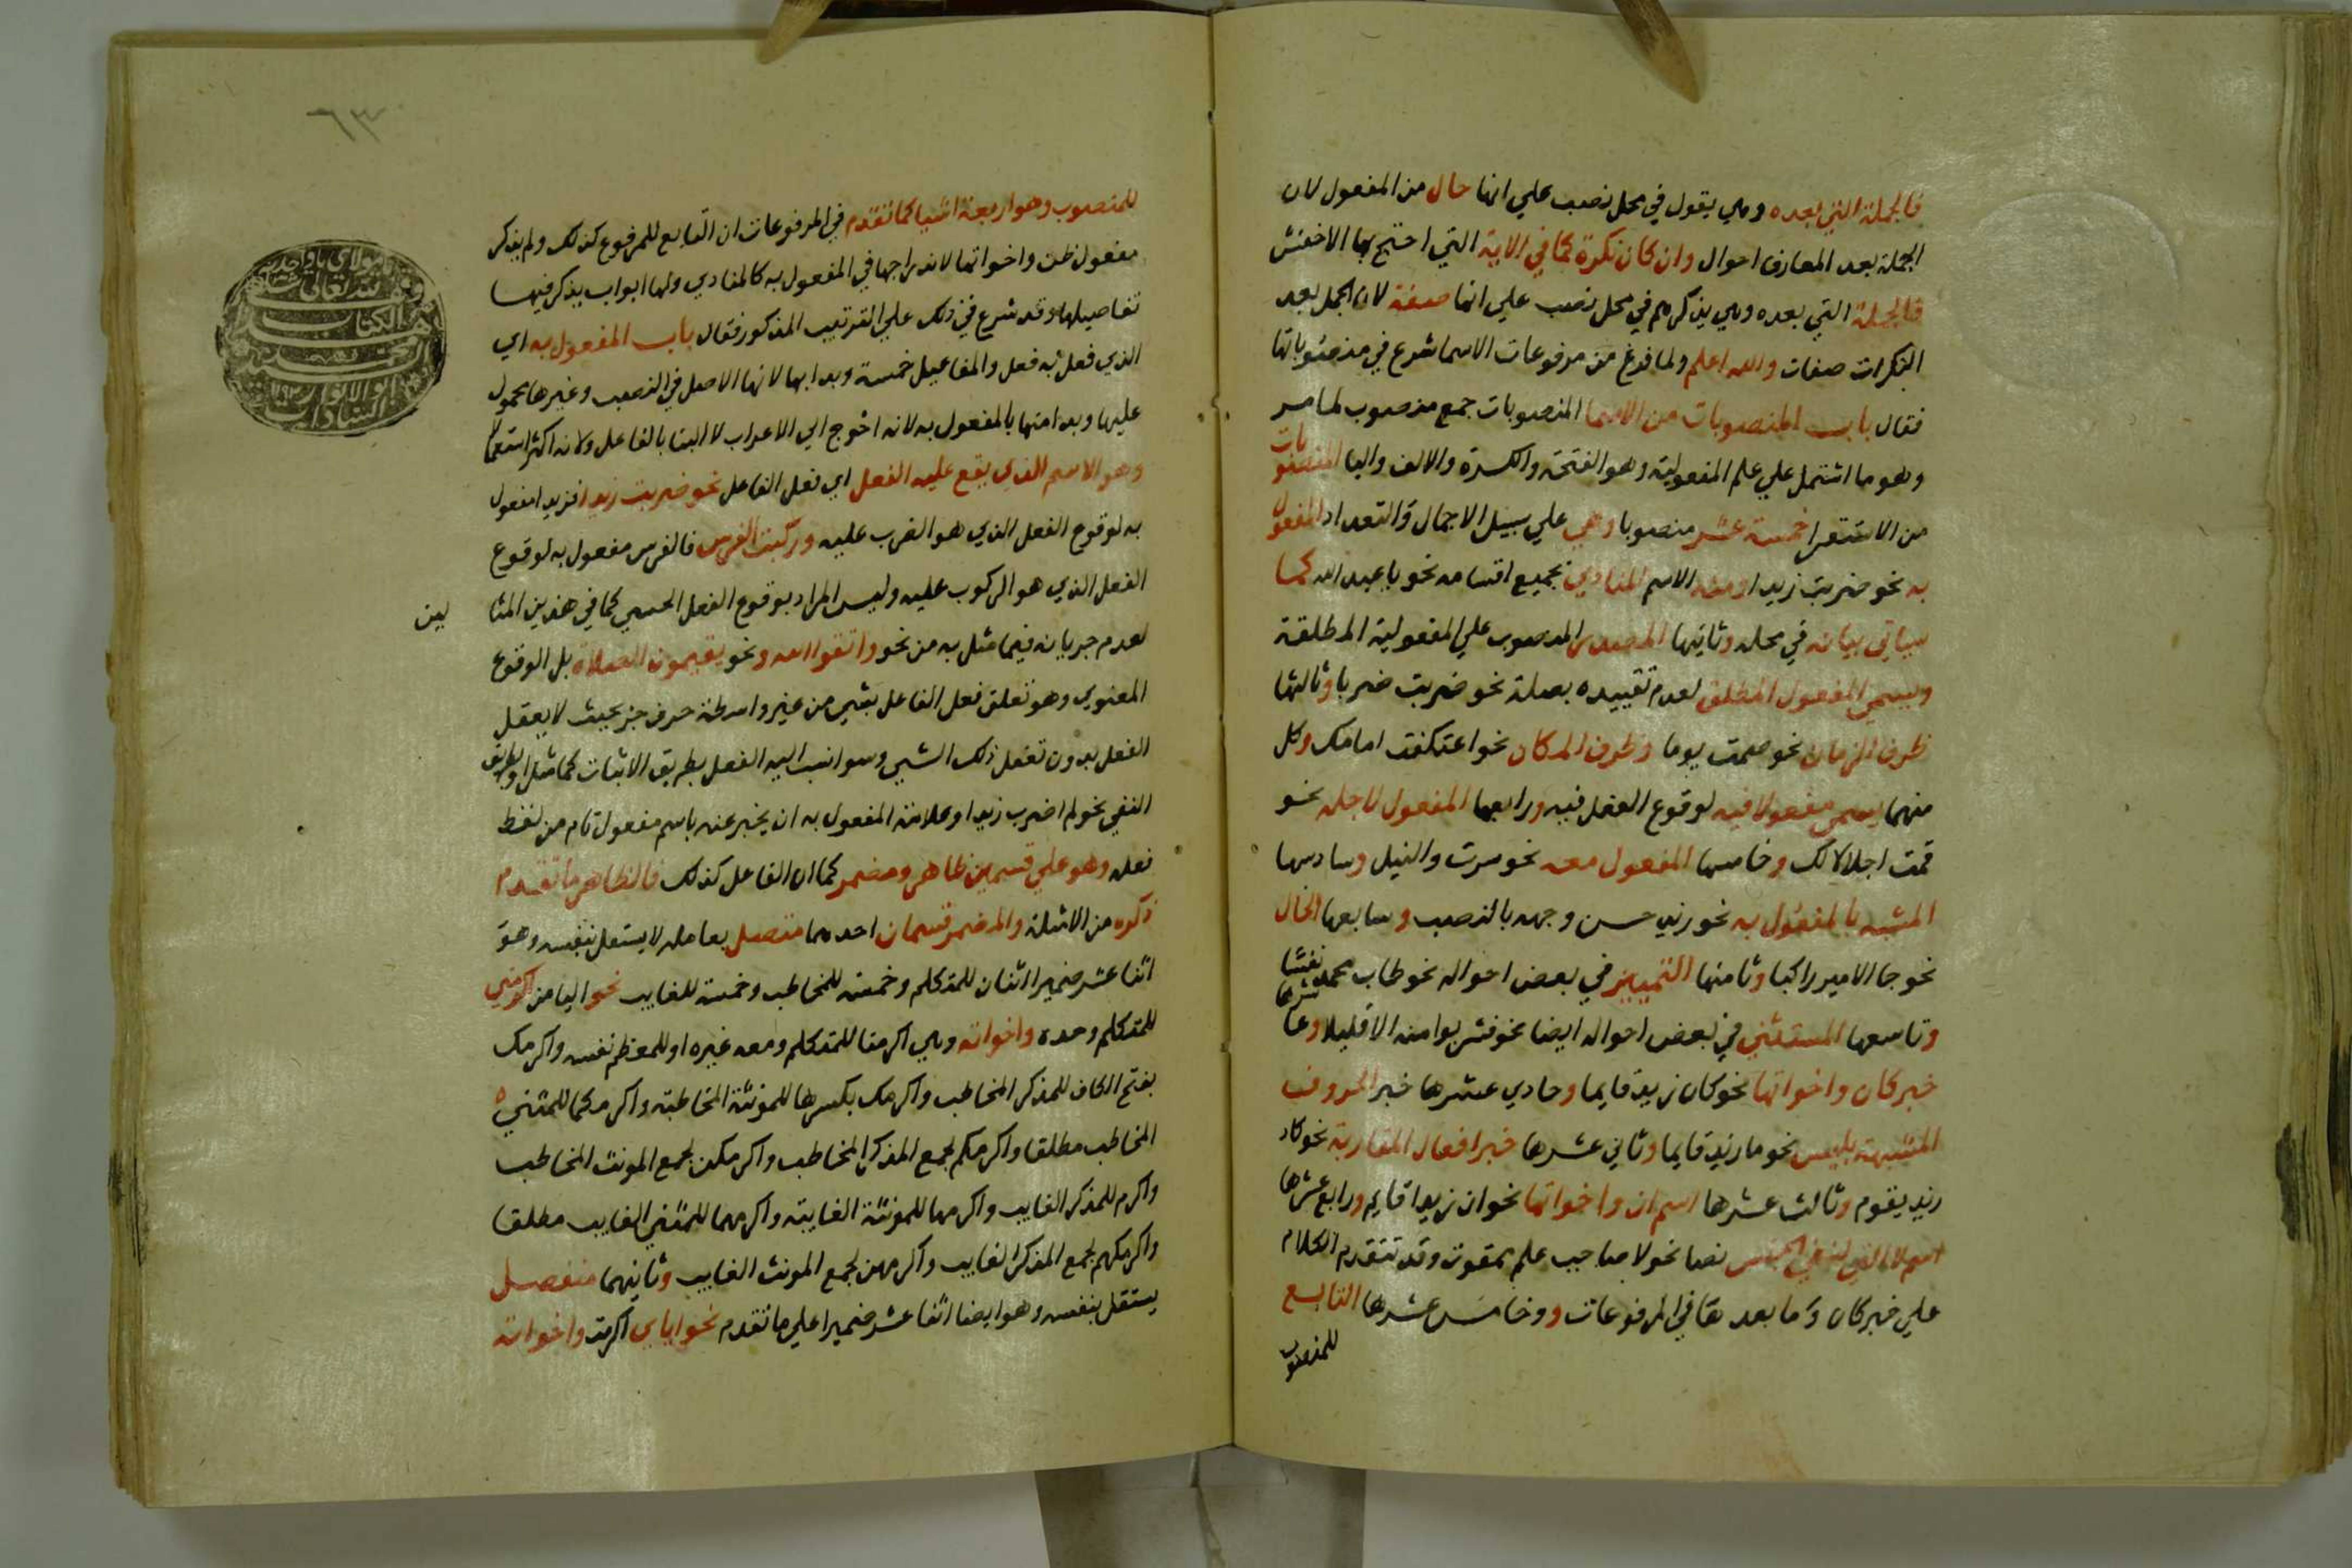 فالجملة التي بعده وهي يقول في محل نصب علي انها حال من المفعول لان
الجملة بعد المعارف احوال وان كان نكرة كما في الاية التي احتج بها الاخفش
فالجملة التي بعده وهي يذكرهم في محل نصب علي انها صفة لان الجمل بعد
النكرات صفات والله اعلم ولما فرغ من مرفوعات الاسما شرع في منصوباتها
فقال باب المنصوبات من الاسما المنصوبات جمع منصوب لما مر
وهو ما اشتمل علي علم المفعولية وهو الفتحة والكسرة والالف واليا المنصوبات
من الاستقرا خمسة عشر منصوبا وهي علي سبيل الاجمال والتعداد المفعول
به نحو ضربت زيدا ومنه الاسم المنادي بجميع اقسامه نحو يا عبد الله كما
سياتي بيانه في محله وثانيها المصدر المنصوب علي المفعولية المطلقة
ويسمي المفعول المطلق لعدم تقييده بصلة نحو ضربت ضربا وثالثها
ظرف الزمان نحو صمت يوما وظرف المكان نحو اعتكفت امامك وكل
منهما يسمي مفعولا فيه لوقوع الفعل فيه ورابعها المفعول لاجله نحو
قمت اجلالا لك وخامسها المفعول معه نحو سرت والنيل وسادسها
المشبه بالمفعول به نحو زيد حسن وجهه بالنصب وسابعها الحال
نحو جا الامير راكبا وثامنها التمييز في بعض احواله نحو طاب محمد نفسا
وتاسعها المستثني في بعض احواله ايضا نحو فشربوا منه الا قليلا وعاشرها
خبر كان واخواتها نحو كان زيد قايما وحادي عشرها خبر الحروف
المشبهة بليس نحو ما زيد قايما وثاني عشرها خبر افعال المقاربة نحو كاد
زيد يقوم وثالث عشرها اسم ان واخواتها نحو ان زيدا قايم ورابع عشرها
اسم لا التي لنفي الجنس نصا نحو لا صاحب علم ممقوت وقد تتقدم الكلام
علي خبر كان وما بعدها في المرفوعات ووخامس عشرها التابع
للمنصوب
٦٣
للمنصوب وهو اربعة اشيا كما تقدم في المرفوعات ان التابع للمرفوع كذلك ولم يذكر
مفعول ظن واخواتها لاندراجها في المفعول به كالمنادي ولها ابواب يذكر فيها
تفاصيلها وقد شرع في ذلك علي الترتيب المذكور فقال باب المفعول به اي
الذي فعل به فعل والمفاعيل خمسة وبدا بها لانها الاصل في النصب وغيرها محمول
عليها وبدا منها بالمفعول به لانه احوج الي الاعراب لا البنا بالفاعل ولانه اكثر استعمالا
وهو الاسم الذي يقع عليه الفعل اي فعل الفاعل نحو ضربت زيدا فزيدا مفعول
به لوقوع الفعل الذي هو الضرب عليه وركبت الفرس فالفرس مفعول به لوقوع
الفعل الذي هو الركوب عليه وليس المراد بوقوع الفعل الحسي كما في هذين المثا
لين
لعدم جريانه فيما مثل به من نحو واتقوا الله ونحو يقيمون الصلاة بل الوقوع
المعنوي وهو تعلق فعل الفاعل بشي من غير واسطة حرف جر بحيث لا يعقل
الفعل بدون تعقل ذلك الشي وسوا نسب اليه الفعل بطريق الاثبات كما مثل او بطريق
النفي نحو لم اضرب زيدا وعلامة المفعول به ان يخبر عنه باسم مفعول تام من لفظ
فعله وهو علي قسمين ظاهر ومضمر كما ان الفاعل كذلك فالظاهر ما تقدم
ذكره من الامثلة والمضمر قسمان احدهما متصل بعامله لا يستقل بنفسه وهو
اثنا عشر ضميرا اثنان للمتكلم وخمسة للمخاطب وخمسة للغايب نحو اليا من اكرمني
للمتكلم وحده واخواته وهي اكرمنا للمتكلم ومعه غيره او للمعظم نفسه واكرمك
بفتح الكاف للمذكر المخاطب واكرمك بكسرها للمونثة المخاطبة واكرمكما للمثني
المخاطب مطلقا واكرمكم لجمع المذكر المخاطب واكرمكن لجمع المونث المخاطب
واكرم للمذكر الغايب واكرمها للمونثة الغايبة واكرمهما للمثني الغايب مطلقا
واكرمكهم لجمع المذكر الغايب واكرمهن لجمع المونث الغايب وثانيهما منفصل
يستقل بنفسه وهو ايضا اثنا عشر ضميرا علي ما تقدم نحو اياي اكرمت واخواته